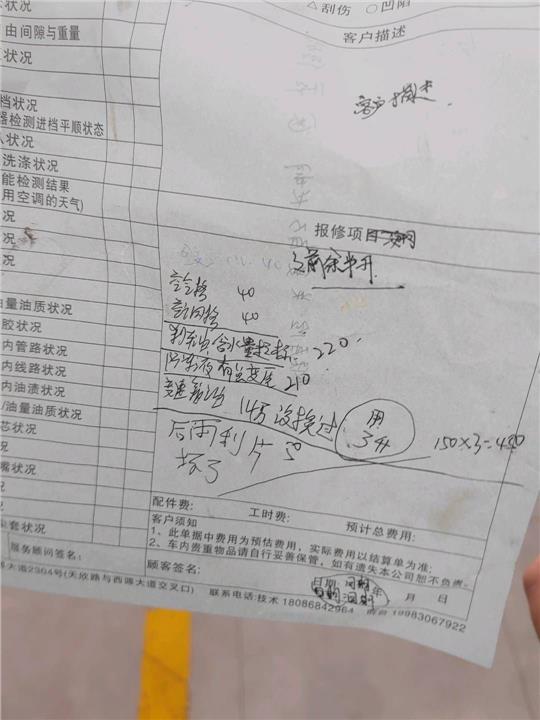 状况
△刮伤 ○凹陷
由间隙与重量
客户描述
状况
档状况
器检测进档平顺状态
状况
洗涤状况
能检测结果
用空调的天气)
况
报修项目
况
之前余半升
空气格 40
空调格 40
油量油质状况
刹车油含水量超标 220
胶状况
内管路状况
有点变质 210
内线路状况
变速箱油 14万没换过
用
3升
150×3=450
内油渍状况
/油量油质状况
后雨刮片 50
坏了
芯状况
况
嘴状况
况
配件费: 工时费: 预计总费用:
况
客户须知
1、此单据中费用为预估费用,实际费用以结算单为准;
2、车内贵重物品请自行妥善保管,如有遗失本公司恕不负责。
套状况
服务顾问签名: 顾客签名: 日期: 年 月 日
大道2304号(天欣路与西端大道交叉口) 联系电话:技术 18086842964 19983067922